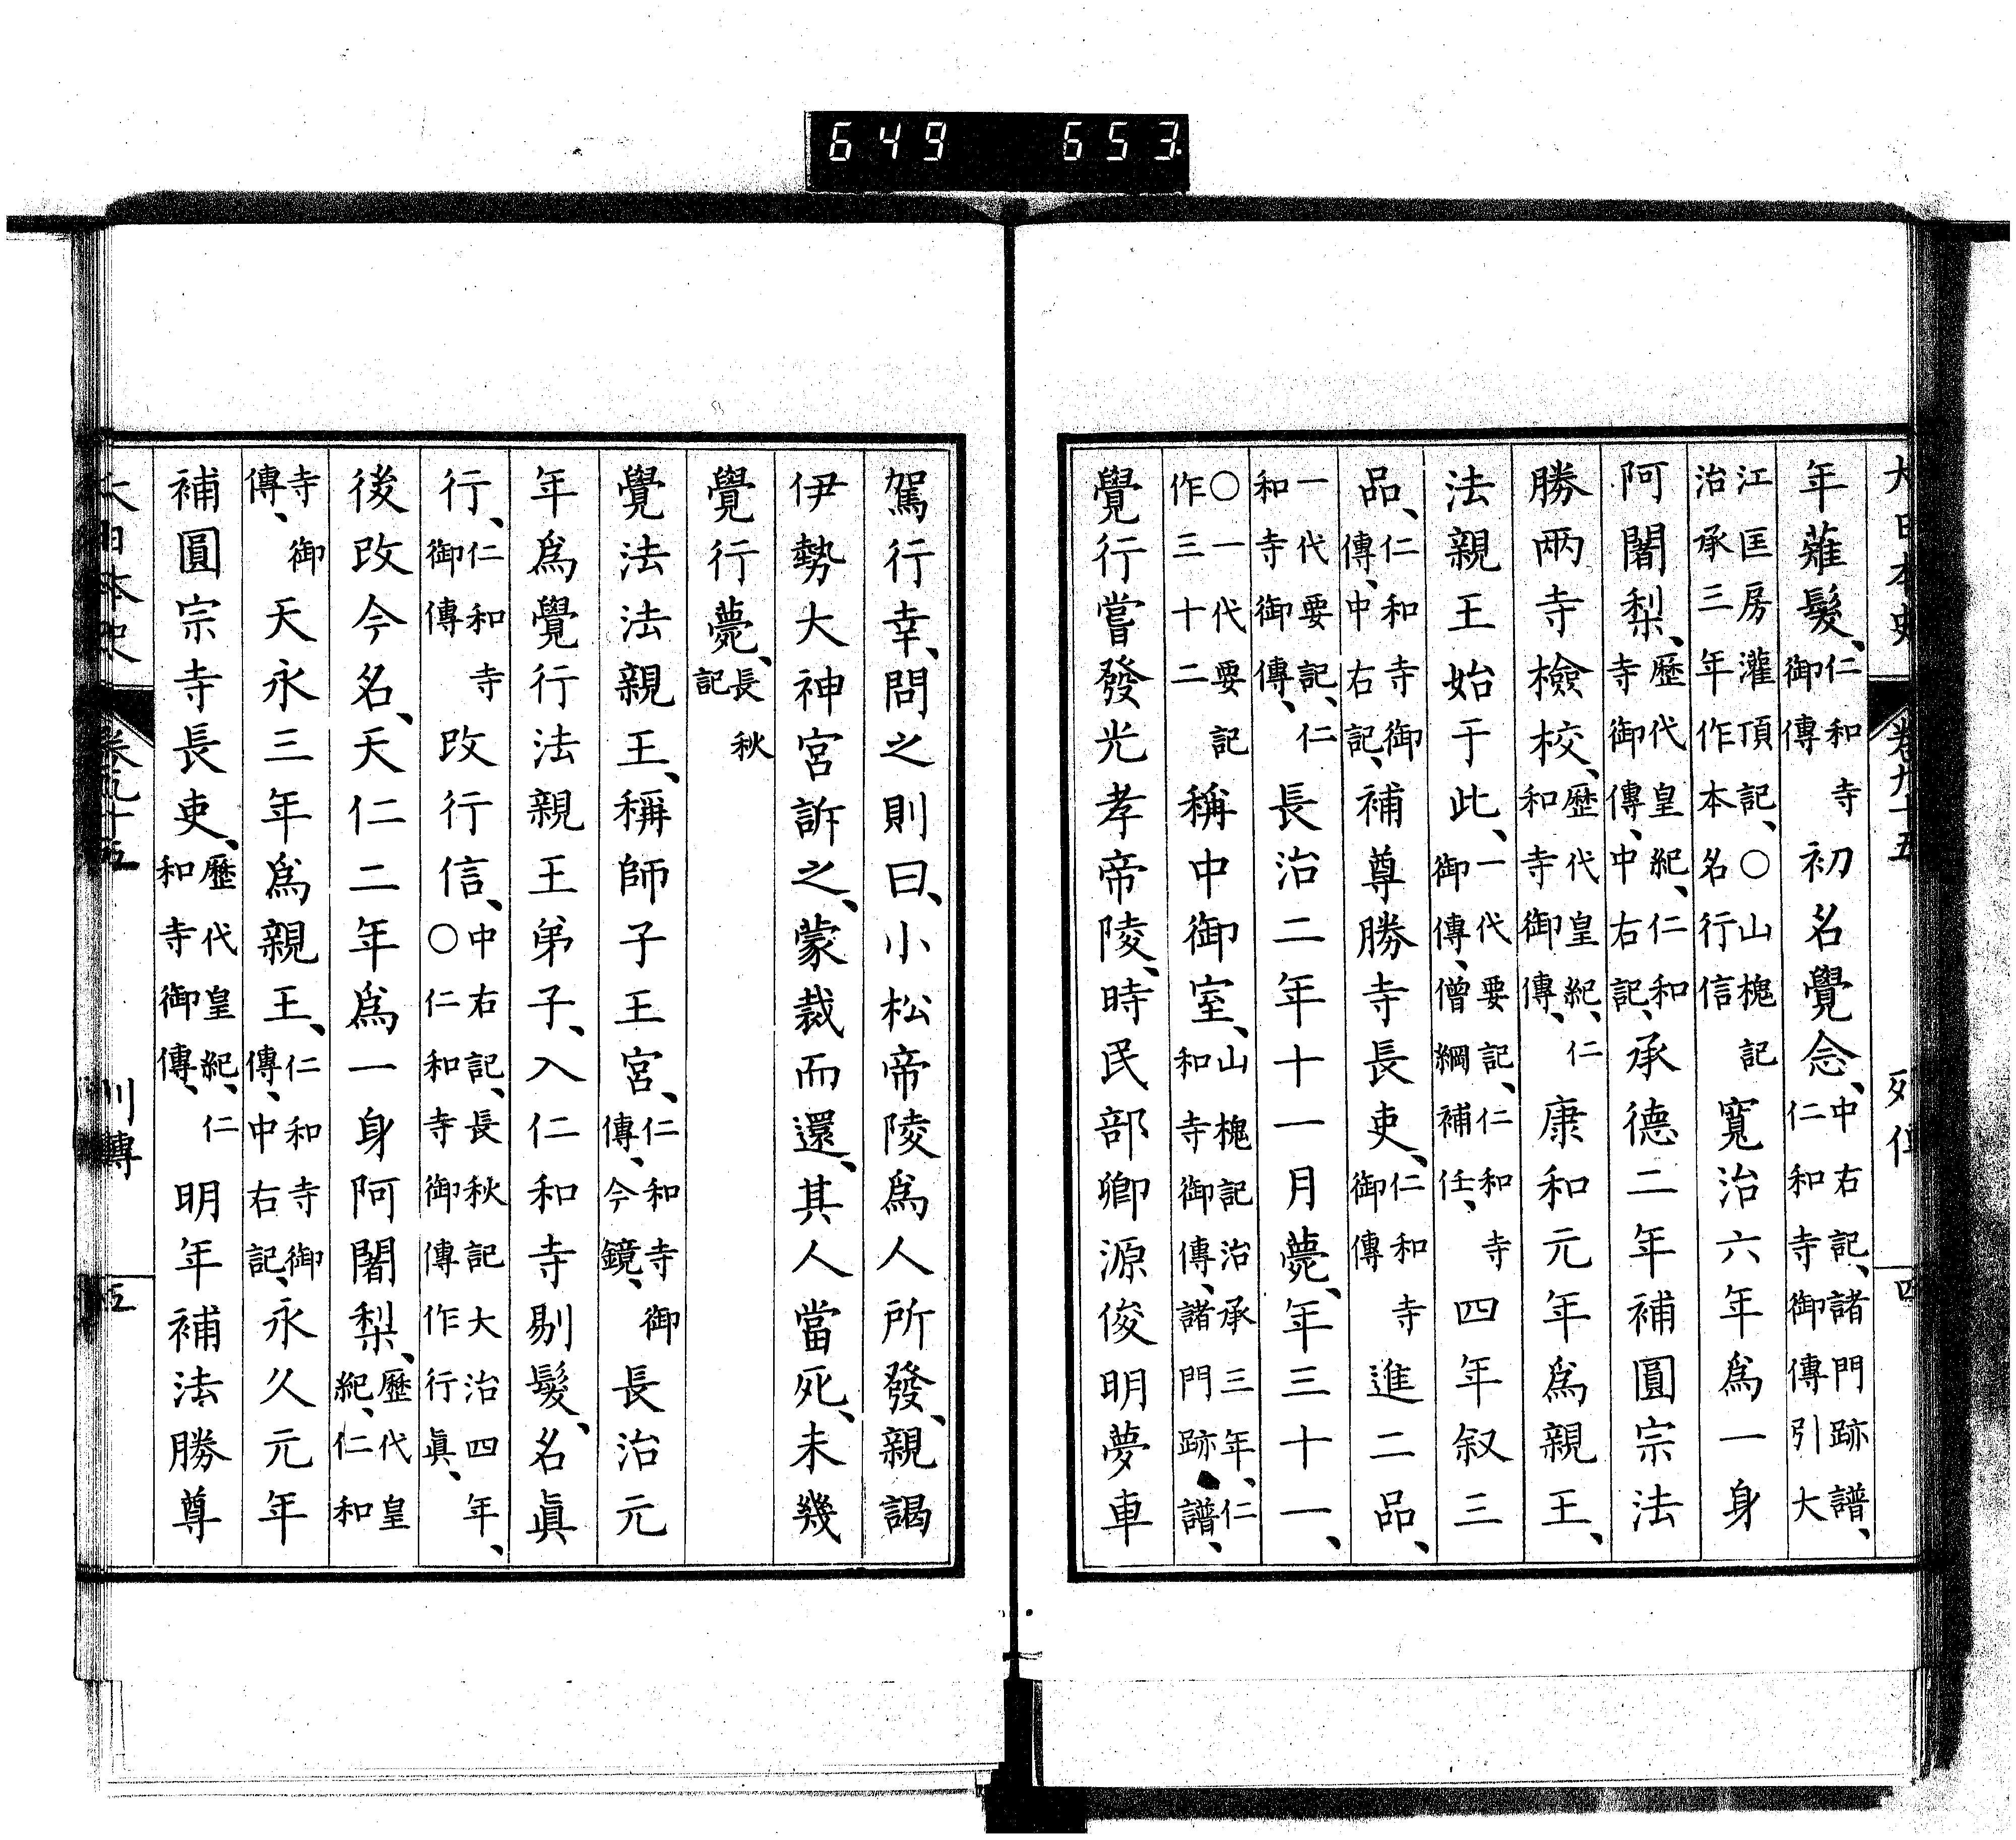 大日本史 卷九十五 列傳 四
年薙髮、仁和寺御傳初名覺念、中右記、諸門跡譜、仁和寺御傳引大
江匡房灌頂記、○山槐記治承三年作本名行信寬治六年爲一身
阿闍梨、歷代皇紀、仁和寺御傳、中右記、承德二年補圓宗法
勝兩寺檢校、歷代皇紀、仁和寺御傳、康和元年爲親王、
法親王始于此、一代要記、仁和寺御傳、僧綱補任、四年叙三
品、仁和寺御傳、中右記、補尊勝寺長吏、仁和寺御傳進二品、
一代要記、仁和寺御傳、長治二年十一月薨、年三十一、
○一代要記作三十二稱中御室、山槐記治承三年、仁和寺御傳、諸門跡譜、
覺行嘗發光孝帝陵、時民部卿源俊明夢車
駕行幸、問之則曰、小松帝陵爲人所發、親謁
伊勢大神宮訴之、蒙裁而還、其人當死、未幾
覺行薨、長秋記
覺法法親王、稱師子王宮、仁和寺御傳、今鏡、長治元
年爲覺行法親王弟子、入仁和寺剔髮、名眞
行、仁和寺御傳改行信、中右記、長秋記大治四年、○仁和寺御傳作行眞、
後改今名、天仁二年爲一身阿闍梨、歷代皇紀、仁和
寺御傳、天永三年爲親王、仁和寺御傳、中右記、永久元年
補圓宗寺長吏、歷代皇紀、仁和寺御傳、明年補法勝尊
大日本史 卷九十五 列傳 五
649 653